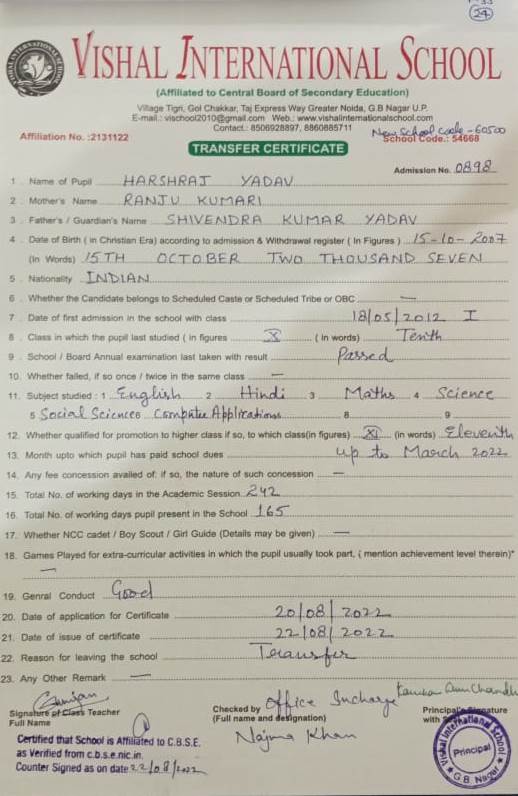 24
VISHAL INTERNATIONAL SCHOOL
(Affiliated to Central Board of Secondary Education)
Village Tigri, Gol Chakkar, Taj Express Way Greater Noida, G.B Nagar U.P.
E-mail.: vischool2010@gmail.com Web.: www.vishalinternationalschool.com
Contact.: 8506928897, 8860885711
New School Code - 60500
Affiliation No. :2131122 School Code.: 54668
TRANSFER CERTIFICATE
Admission No. 0898
1 . Name of Pupil HARSHRAJ YADAV
2 . Mother's Name RANJU KUMARI
3 . Father's / Guardian's Name SHIVENDRA KUMAR YADAV
4 . Date of Birth ( in Christian Era) according to admission & Withdrawal register ( In Figures ) 15-10-2007
(In Words) 15TH OCTOBER TWO THOUSAND SEVEN
5 . Nationality INDIAN
6 . Whether the Candidate belongs to Scheduled Caste or Scheduled Tribe or OBC —
7 . Date of first admission in the school with class 18/05/2012 I
8 . Class in which the pupil last studied ( in figures X ( In words) Tenth
9 . School / Board Annual examination last taken with result Passed
10. Whether failed, if so once / twice in the same class —
11. Subject studied : 1 English 2 Hindi 3 Maths 4 Science
5 Social Sciences Computer Applications 8 9
12. Whether qualified for promotion to higher class if so, to which class(in figures) XI (in words) Eleventh
13. Month upto which pupil has paid school dues up to March 2022
14. Any fee concession availed of: if so, the nature of such concession —
15. Total No. of working days in the Academic Session 242
16. Total No. of working days pupil present in the School 165
17. Whether NCC cadet / Boy Scout / Girl Guide (Details may be given) —
18. Games Played for extra-curricular activities in which the pupil usually took part, ( mention achievement level therein)*
—
19. Genral Conduct Good
20. Date of application for Certificate 20/08/2022
21. Date of issue of certificate 22/08/2022
22. Reason for leaving the school Transfer
23. Any Other Remark —
Signature of Class Teacher Checked by Office Incharge Principal's Signature
Full Name (Full name and designation) with
Najma Khan
Certified that School is Affiliated to C.B.S.E.
as Verified from c.b.s.e.nic.in.
Counter Signed as on date 22/08/2022
Vishal International School
Principal
G.B. Nagar